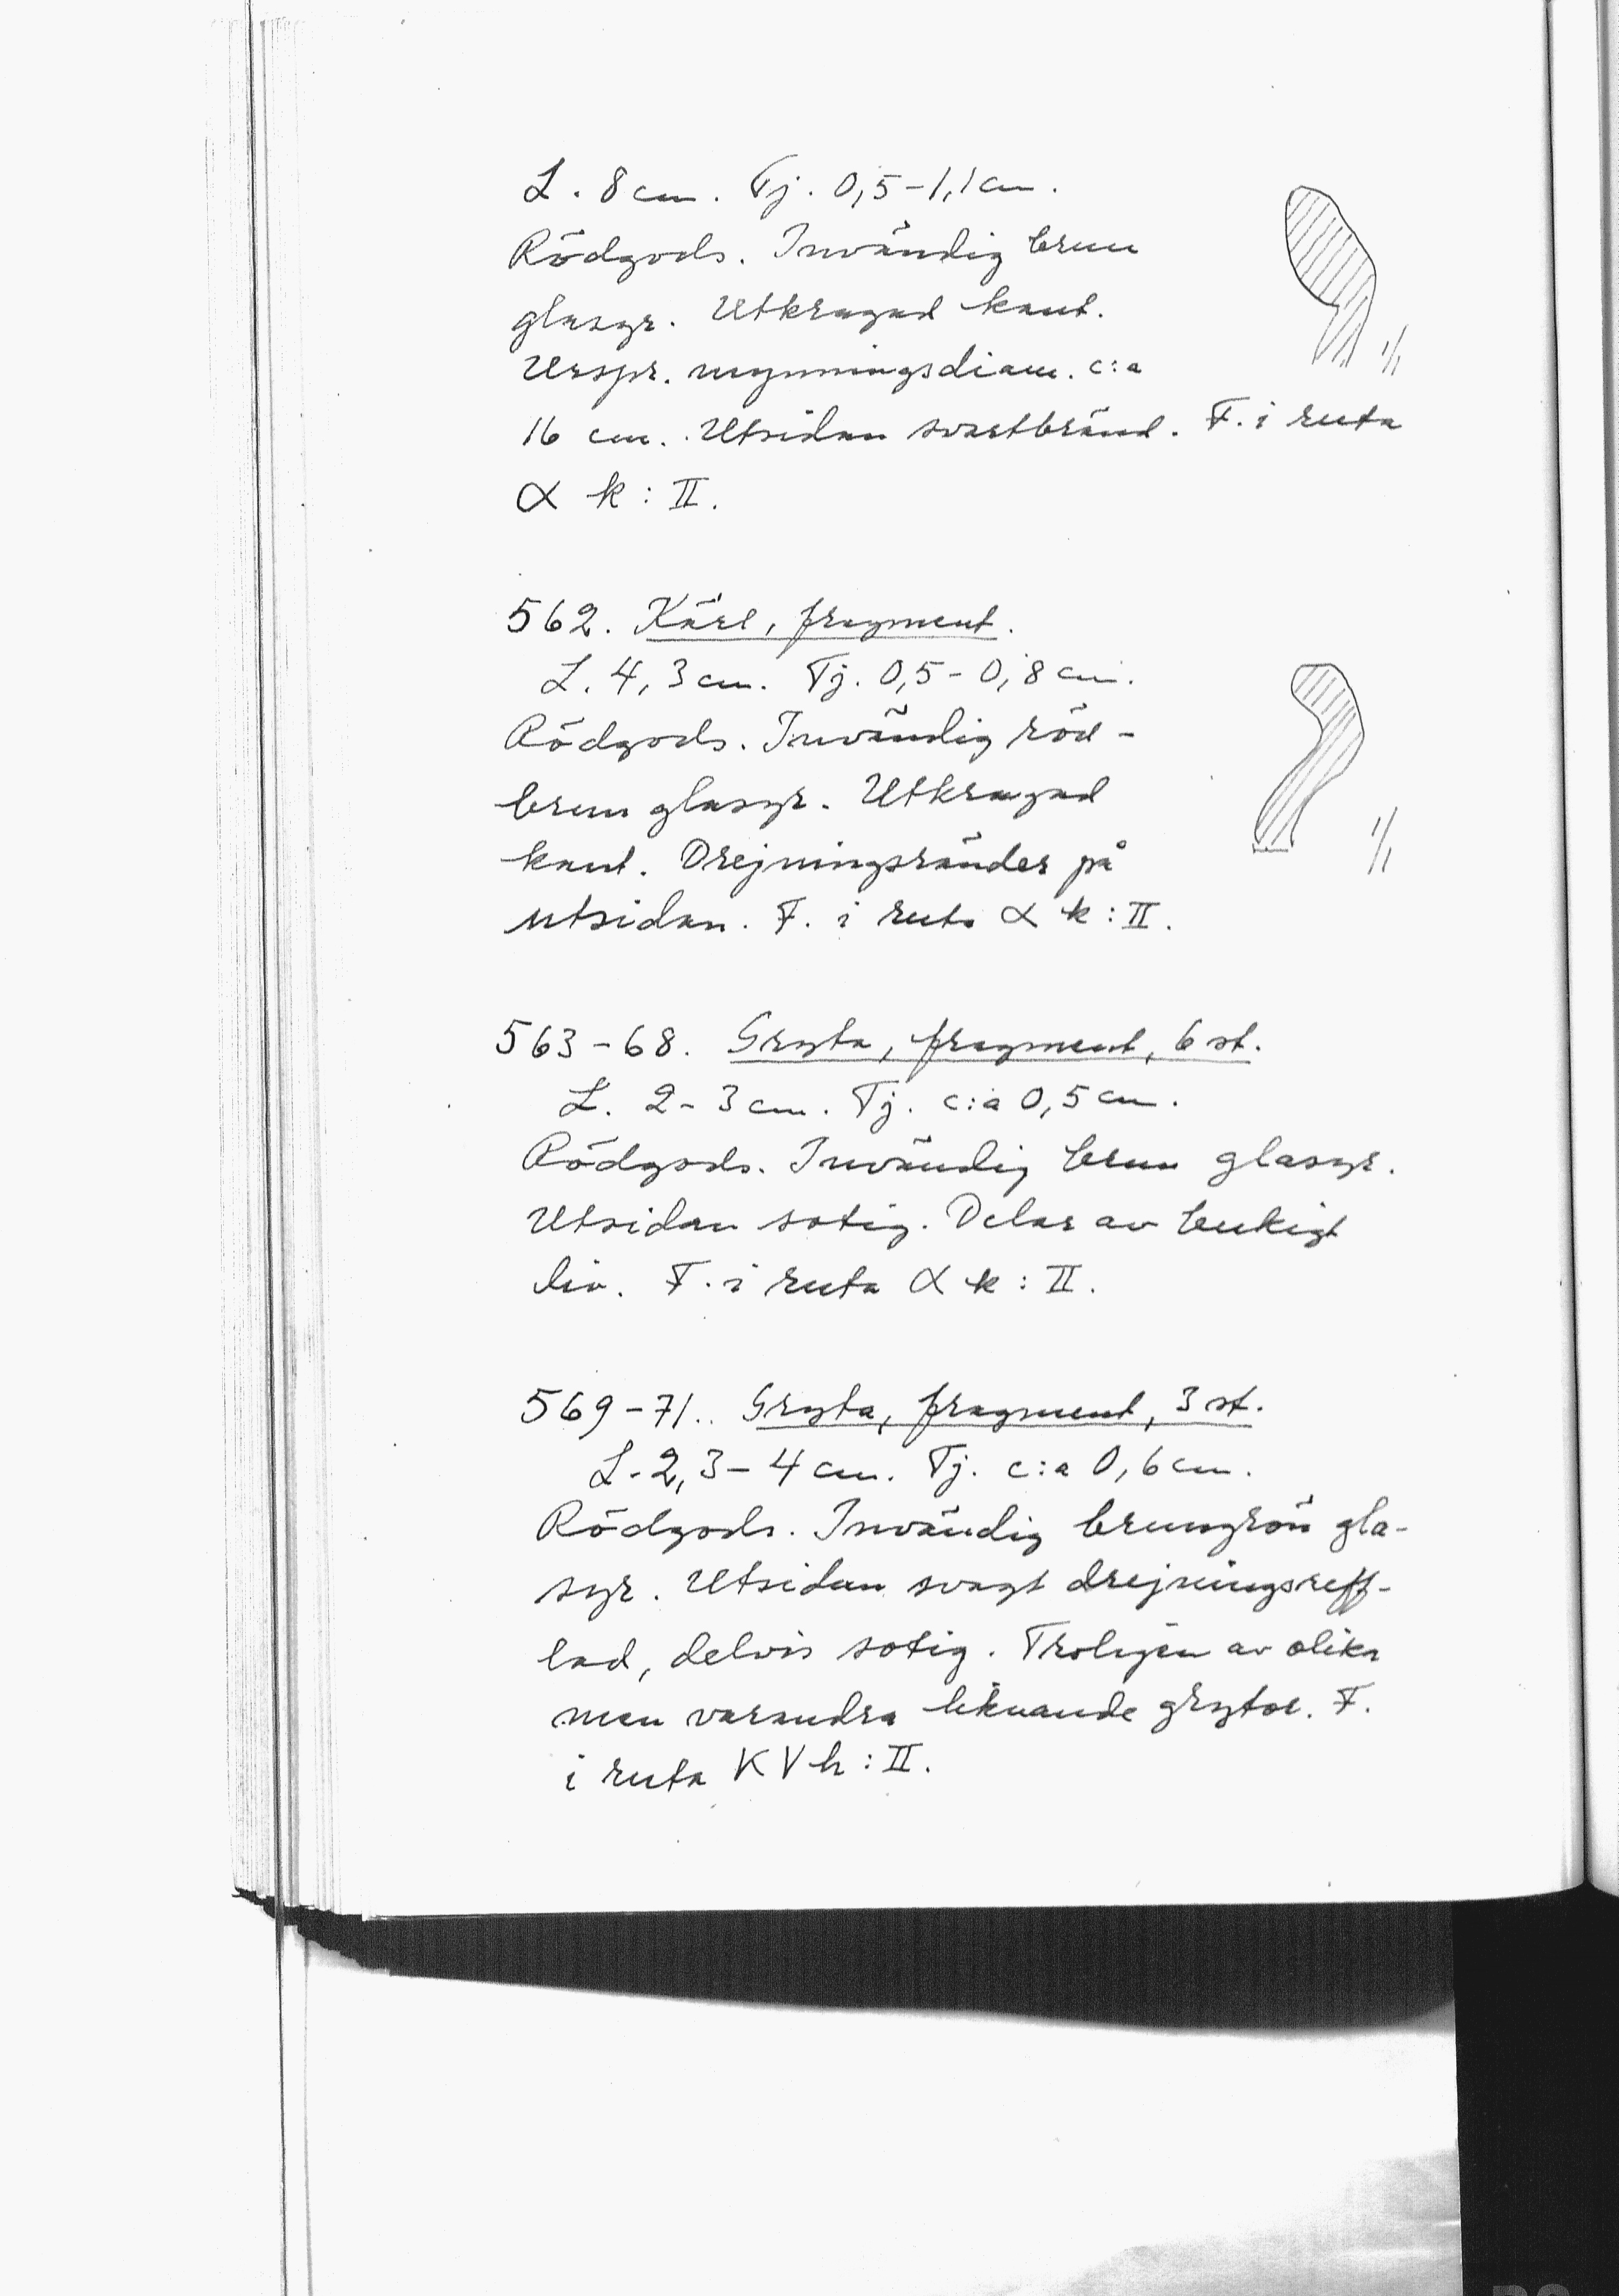 L. 8 cm. Tj. 0,5-1,1 cm.
Rödgods. Invändig brun
glasyr. Utkragad kant.
Urspr. mynningsdiam. c:a
16 cm. Utsidan svartbränd. F. i ruta
α k : II.
1/1
562. Kärl, fragment.
L. 4,3 cm. Tj. 0,5-0,8 cm.
Rödgods. Invändig röd-
brun glasyr. Utkragad
kant. Drejningsränder på
utsidan. F. i ruta α k : II.
1/1
563-68. Gryta, fragment, 6 st.
L. 2-3 cm. Tj. c:a 0,5 cm.
Rödgods. Invändig brun glasyr.
Utsidan sotig. Delar av bukigt
liv. F. i ruta α k : II.
569-71. Gryta, fragment, 3 st.
L. 2,3-4 cm. Tj. c:a 0,6 cm.
Rödgods. Invändig brungrön gla-
syr. Utsidan svagt drejningsreff-
lad, delvis sotig. Troligen av olika
men varandra liknande grytor. F.
i ruta KVh : II.